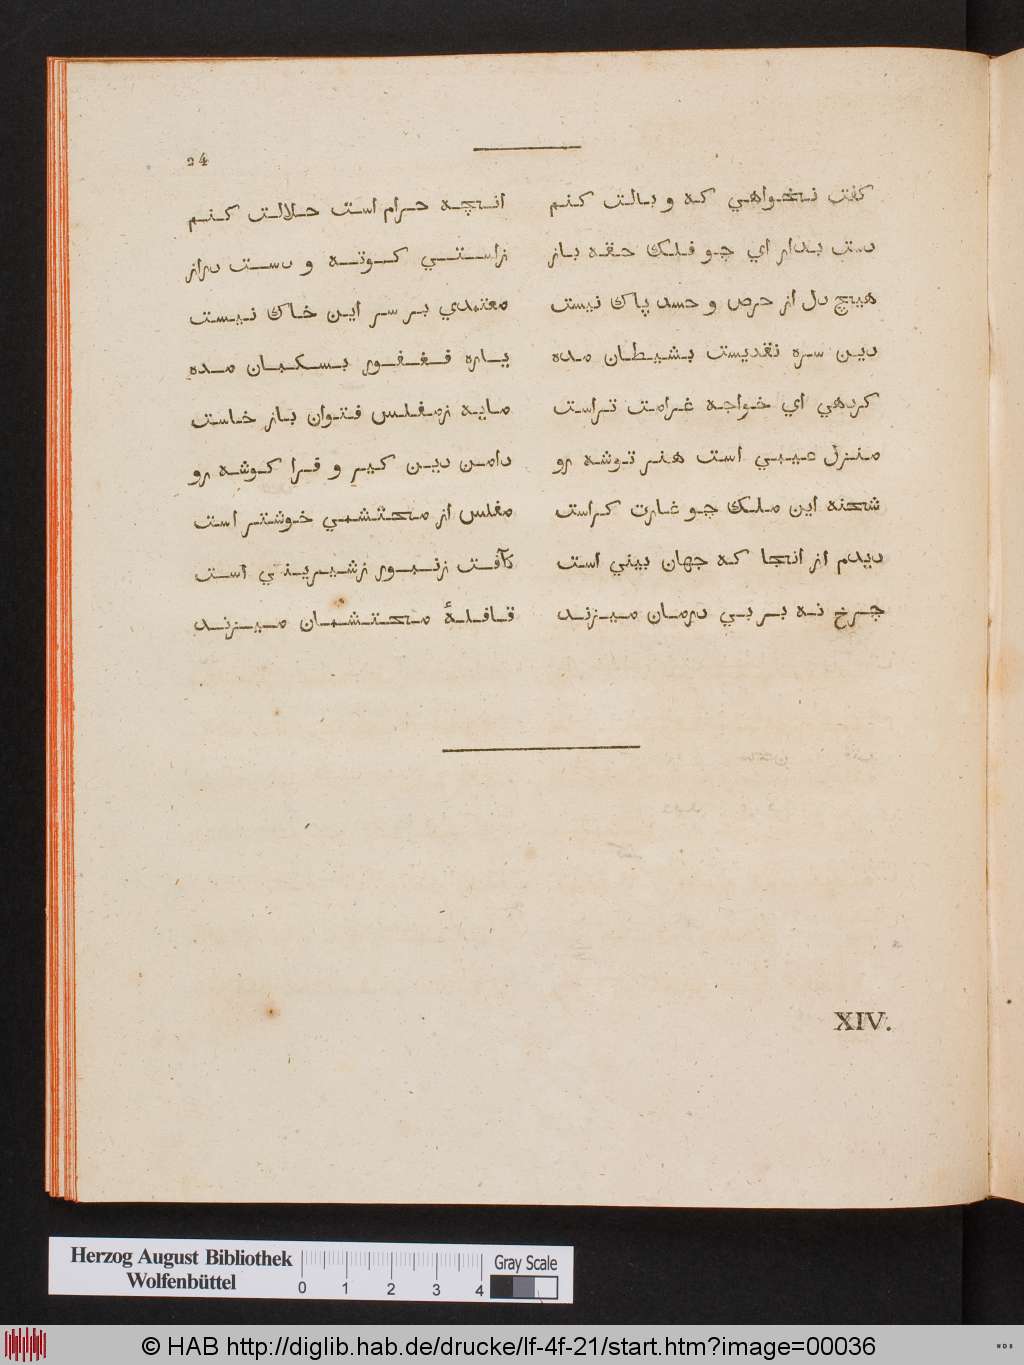 24
كفت نخواهي كه و بالت كنم انچه حرام است حلالت كنم
دست بدار اي چو فلك حقه باز راستي كوته و دست دراز
هيچ دل از حرص و حسد پاك نيست معتمدي بر سر اين خاك نيست
دين سره نقديست بشيطان مده ياره فغفور بسكبان مده
كردهي اي خواجه غرامت تراست مايه زمفلس فتوان باز خاست
منزل عيبي است هنر توشه رو دامن دين كير و فرا كوشه رو
شحنه اين ملك چو غارت كراست مفلس از محتشمي خوشتر است
ديدم از انجا كه جهان بيني است كآفت زنبور زشيريني است
چرخ نه بر بي درمان ميزند قافلهٔ محتشمان ميزند
XIV.
Herzog August Bibliothek
Wolfenbüttel
0 1 2 3 4
Gray Scale
© HAB http://diglib.hab.de/drucke/lf-4f-21/start.htm?image=00036